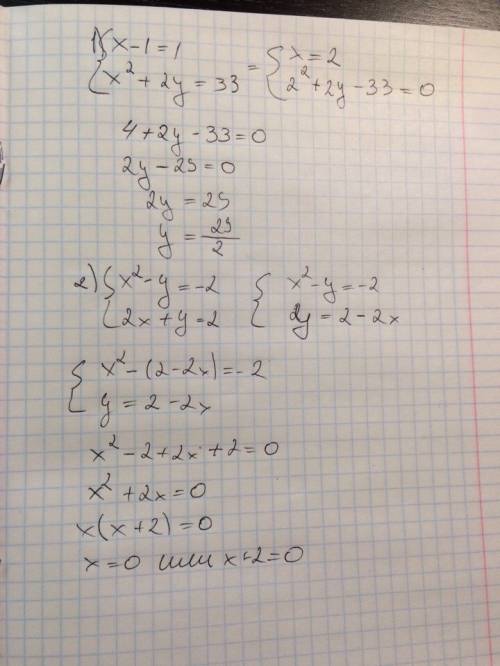 1) { x - 1 = 1 = { x = 2
{ x² + 2y = 33 { 2² + 2y - 33 = 0
4 + 2y - 33 = 0
2y - 29 = 0
2y = 29
y = 29/2
2) { x² - y = -2 { x² - y = -2
{ 2x + y = 2 { y = 2 - 2x
{ x² - (2 - 2x) = -2
{ y = 2 - 2x
x² - 2 + 2x + 2 = 0
x² + 2x = 0
x(x + 2) = 0
x = 0 или x + 2 = 0